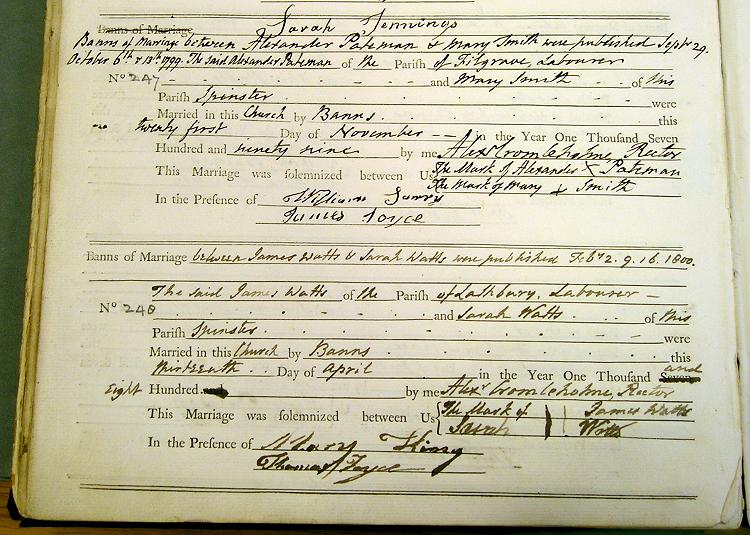 Sarah Jennings
Banns of Marriage
Banns of Marriage between Alexander Pateman & Mary Smith were published Septr 29.
October 6th & 13th 1799. The said Alexander Pateman of the Parish of Filgrave, Labourer
No 247 and Mary Smith of this
Parish Spinster were
Married in this Church by Banns this
twenty first Day of November in the Year One Thousand Seven
Hundred and ninety nine by me Alexr Crombleholme Rector
This Marriage was solemnized between Us The Mark of Alexander X Pateman
The Mark of Mary X Smith
In the Presence of William
James Joyce
Banns of Marriage between James Watts & Sarah Watts were published Feby 2. 9. 16. 1800.
The said James Watts of the Parish of Lathbury, Labourer
No 248 and Sarah Watts of this
Parish Spinster were
Married in this Church by Banns this
thirteenth Day of April in the Year One Thousand Seven and
Eight Hundred and by me Alexr Crombleholme, Rector
This Marriage was solemnized between Us The Mark of James Watts
Sarah Watts
In the Presence of Mary King
Thomas Joyce